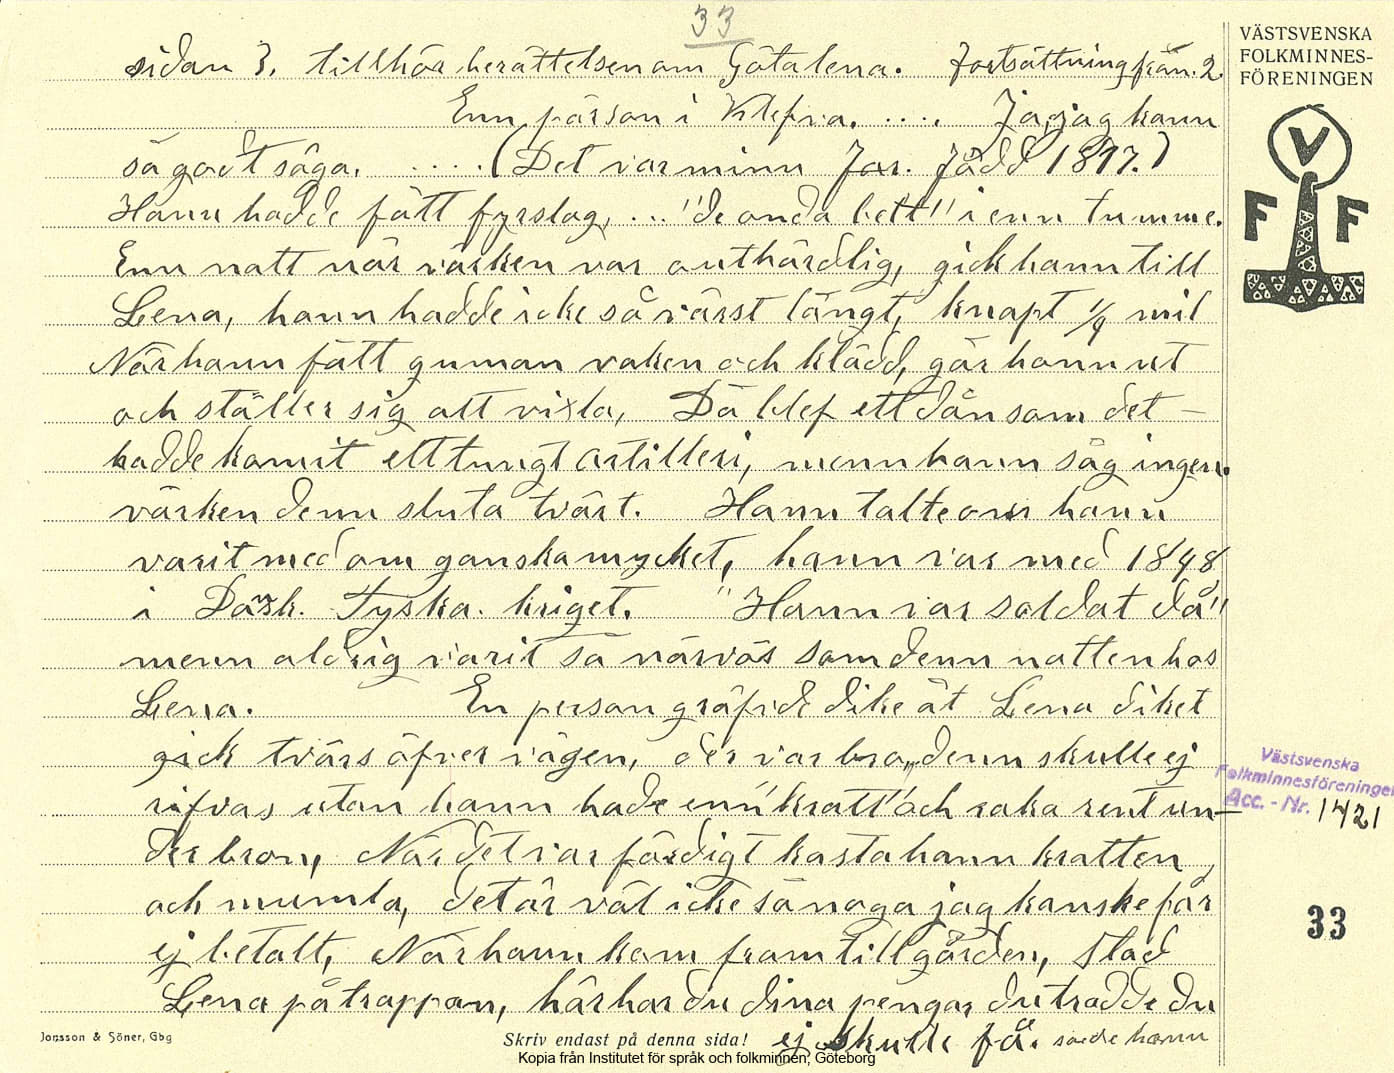 33
sidan 3. tillhör berättelsen om Götalena. Fortsättning från. 2.
Enn pärson i Klefva. .... Ja, jag kann
så godt säga. .... (Det var minn Far. född 1817.)
Hann hadde fått fyrslag, ... "de onda bett" i enn tumme.
Enn natt när värken var outhärdlig, gick hann till
Lena, hann hadde icke så värst långt, knapt 1/4 mil
När hann fått guman vaken och klädd, går hann ut
och ställer sig att vixla, Då blef ett dån som det –
hadde komit ett tungt artilleri, menn hann såg ingen.
värken denn sluta tvärt. Hann talte om hann
varit med om ganska mycket, hann var med 1848
i Dansk. Tyska. kriget. "Hann var soldat då"
menn aldrig varit så närvös som denn natten hos
Lena. En person gräfvde dike åt Lena diket
gick tvärs öfver vägen, der var bro, denn skulle ej
rifvas utan hann hade enn "kratt" och raka rent un–
der bron, När det var färdigt kasta hann kratten
och mumla, det är väl icke så noga jag kanske får
ej betalt, När hann kom fram till gården, stod
Lena på trappan, här har du dina pengar du trodde du
ej skulle få. sade hann
VÄSTSVENSKA
FOLKMINNES-
FÖRENINGEN
V
F F
Västsvenska
Folkminnesföreningen
Acc. - Nr. 1421
33
Jonsson & Söner, Gbg
Skriv endast på denna sida!
Kopia från Institutet för språk och folkminnen, Göteborg